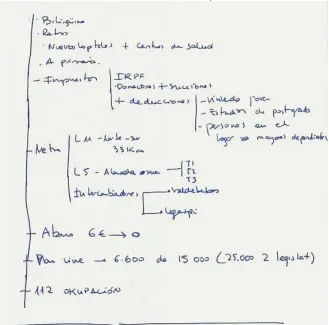 · Bilingüismo
· Ratios
· Nuevos hptales + centros de salud
· A. primaria.
- Impuestos | IRPF
· Donaciones + sucesiones
+ deducciones | - vivienda joven
- Estudios de postgrado
- personas en el
hogar mayores dependientes
- Metro | L11 - norte - sur
33 Km
L5 - Alameda osuna | T1
T2
T3
Intercambiadores → Valdebebas
→ legazpi
- Abono 6€ → 0
- Plan vive → 6.600 de 15 000 (25.000 2 legislat)
- 112 OKUPACIÓN